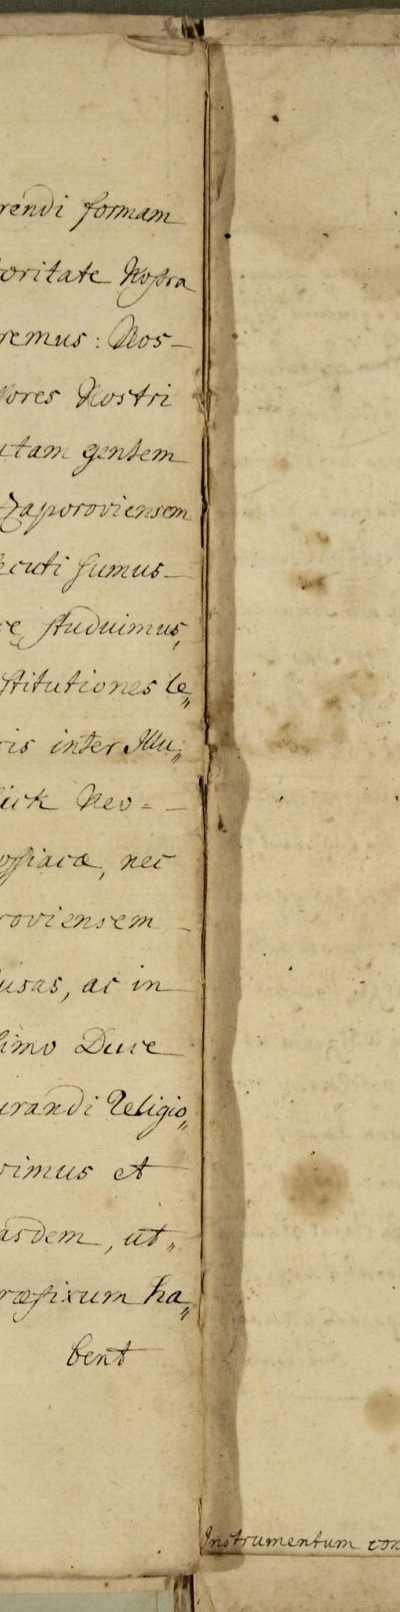 rendi formam
toritate Nostra
remus: Nos-
Nostri
utam gentem
Zaporoviensem
secuti sumus-
re, studuimus,
stitutiones le„
ris inter Illu„
lick Neo=-
ossiacæ, nec
roviensem-
usas, ac in
simo Duce
urandi Religio„
vimus et
asdem, ut„
ræfixum ha„
bent
Instrumentum con